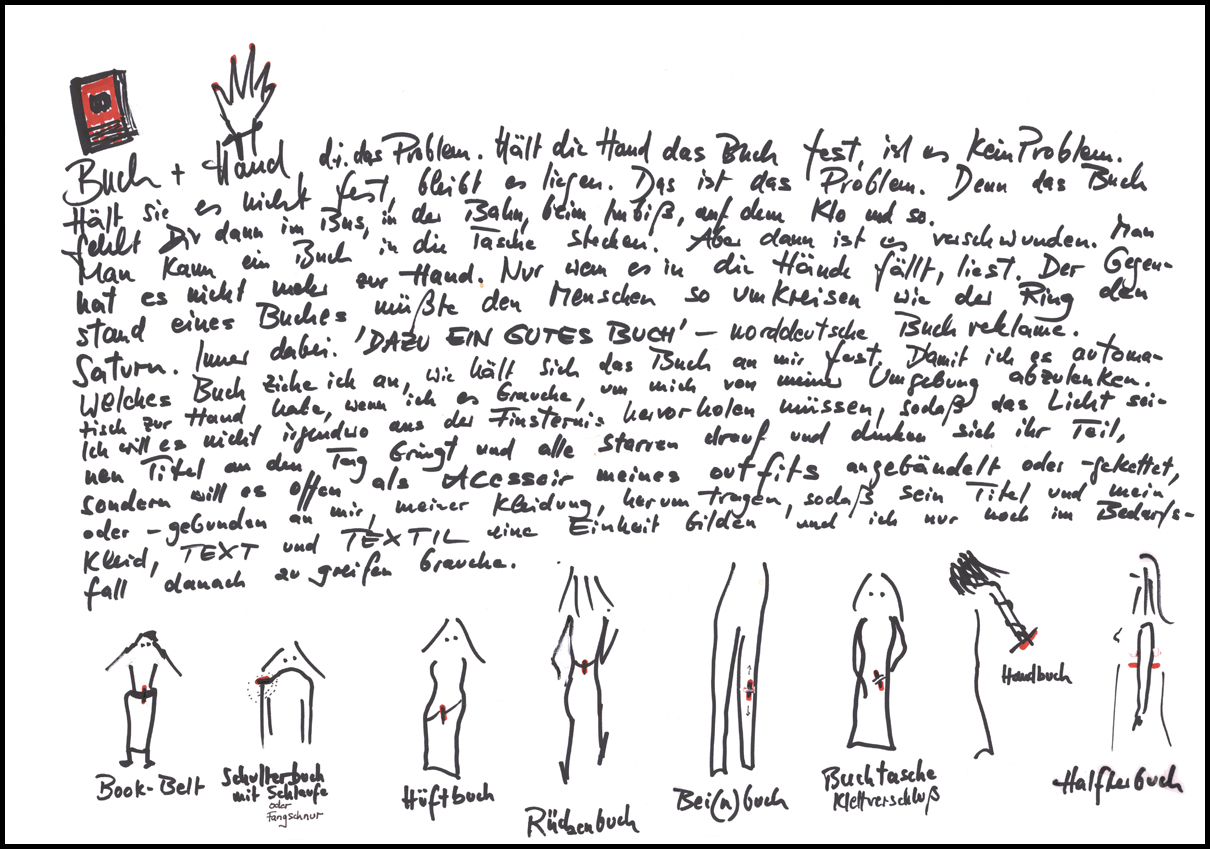 Buch + Hand d.i. das Problem. Hält die Hand das Buch fest, ist es kein Problem.
Hält sie es nicht fest, bleibt es liegen. Das ist das Problem. Denn das Buch
fehlt Dir dann im Bus, in der Bahn, beim Imbiß, auf dem Klo und so.
Man kann ein Buch in die Tasche stecken. Aber dann ist es verschwunden. Man
hat es nicht mehr zur Hand. Nur wenn es in die Hände fällt, liest. Der Gegen-
stand eines Buches müßte den Menschen so umkreisen wie der Ring den
Saturn. Immer dabei. 'DAZU EIN GUTES BUCH' – norddeutsche Buchreklame.
Welches Buch ziehe ich an, wie hält sich das Buch an mir fest. Damit ich es automa-
tisch zur Hand habe, wenn ich es brauche, um mich von meiner Umgebung abzulenken.
Ich will es nicht irgendwo aus der Finsternis hervorholen müssen, sodaß das Licht sei-
nen Titel an den Tag bringt und alle starren drauf und denken sich ihr Teil,
sondern will es offen, als Acessoir meines outfits angebändelt oder -gekettet,
oder -gebunden an mir, meiner Kleidung, herumtragen, sodaß sein Titel und mein
Kleid, TEXT und TEXTIL eine Einheit bilden und ich nur noch im Bedarfs-
fall danach zu greifen brauche.
Book-Belt
Schulterbuch
mit Schlaufe
oder
Fangschnur
Hüftbuch
Rückenbuch
Bei(n)buch
Buchtasche
Klettverschluß
Handbuch
Halfterbuch